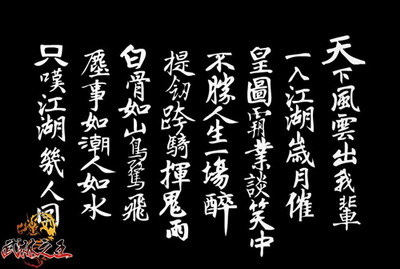 天下風雲出我輩
一入江湖歲月催
皇圖霸業談笑中
不勝人生一場醉
提劍跨騎揮鬼雨
白骨如山鳥驚飛
塵事如潮人如水
只嘆江湖幾人囘
武林之王